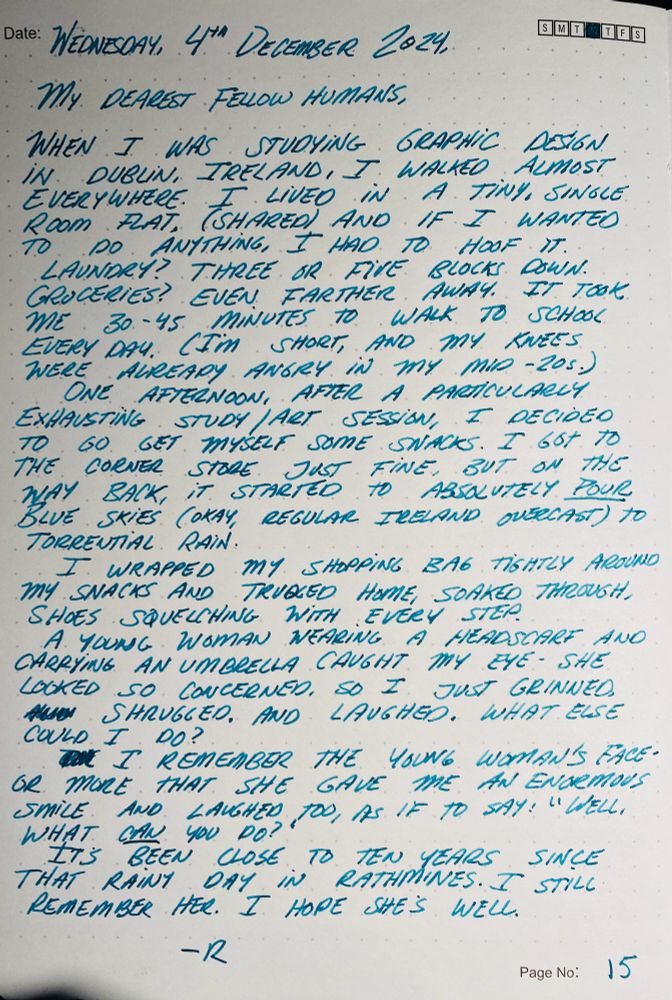 Date: WEDNESDAY, 4TH DECEMBER 2024.
S M T T F S
MY DEAREST FELLOW HUMANS,
WHEN I WAS STUDYING GRAPHIC DESIGN
IN DUBLIN, IRELAND, I WALKED ALMOST
EVERYWHERE. I LIVED IN A TINY, SINGLE
ROOM FLAT, (SHARED) AND IF I WANTED
TO DO ANYTHING, I HAD TO HOOF IT.
LAUNDRY? THREE OR FIVE BLOCKS DOWN.
GROCERIES? EVEN FARTHER AWAY. IT TOOK
ME 30-45 MINUTES TO WALK TO SCHOOL
EVERY DAY. (I'M SHORT, AND MY KNEES
WERE ALREADY ANGRY IN MY MID-20s.)
ONE AFTERNOON, AFTER A PARTICULARLY
EXHAUSTING STUDY/ART SESSION, I DECIDED
TO GO GET MYSELF SOME SNACKS. I GOT TO
THE CORNER STORE JUST FINE, BUT ON THE
WAY BACK, IT STARTED TO ABSOLUTELY POUR
BLUE SKIES (OKAY, REGULAR IRELAND OVERCAST) TO
TORRENTIAL RAIN.
I WRAPPED MY SHOPPING BAG TIGHTLY AROUND
MY SNACKS AND TRUDGED HOME, SOAKED THROUGH,
SHOES SQUELCHING WITH EVERY STEP.
A YOUNG WOMAN WEARING A HEADSCARF AND
CARRYING AN UMBRELLA CAUGHT MY EYE - SHE
LOOKED SO CONCERNED, SO I JUST GRINNED,
SHRUGGED, AND LAUGHED. WHAT ELSE
COULD I DO?
I REMEMBER THE YOUNG WOMAN'S FACE-
OR MORE THAT SHE GAVE ME AN ENORMOUS
SMILE AND LAUGHED, TOO, AS IF TO SAY: "WELL,
WHAT CAN YOU DO?"
IT'S BEEN CLOSE TO TEN YEARS SINCE
THAT RAINY DAY IN RATHMINES. I STILL
REMEMBER HER. I HOPE SHE'S WELL.
-R
Page No: 15